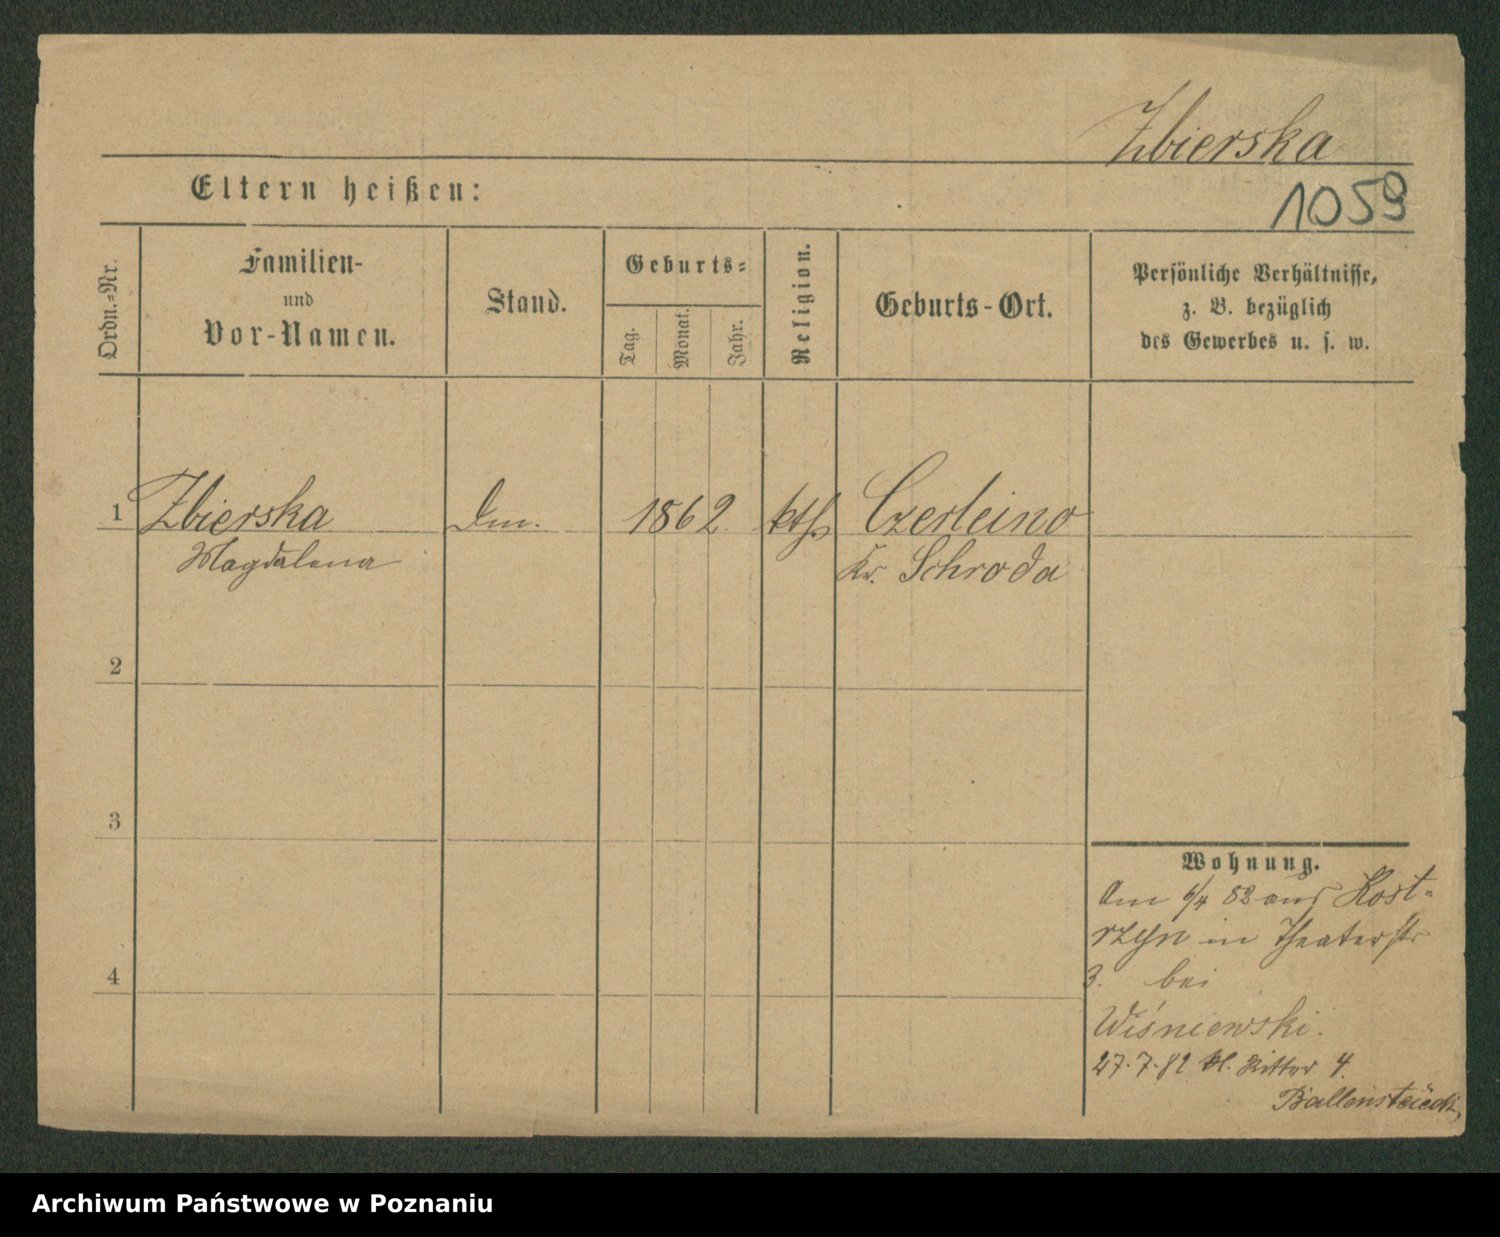 Zbierska
Eltern heißen:
1059
Ordn.=Nr.
Familien-
und
Vor-Namen.
Stand.
Geburts=
Tag.
Monat.
Jahr.
Religion.
Geburts-Ort.
Persönliche Verhältnisse,
z. B. bezüglich
des Gewerbes u. s. w.
1 Zbierska Dm. 1862 kth. Czerleino
Magdalena Kr. Schroda
2
3
4
Wohnung.
Am 6/4 82 aus Kost-
rzyn in Theaterstr
3. bei
Wiśniewski.
27.7.82 kl. Ritter 4.
Archiwum Państwowe w Poznaniu